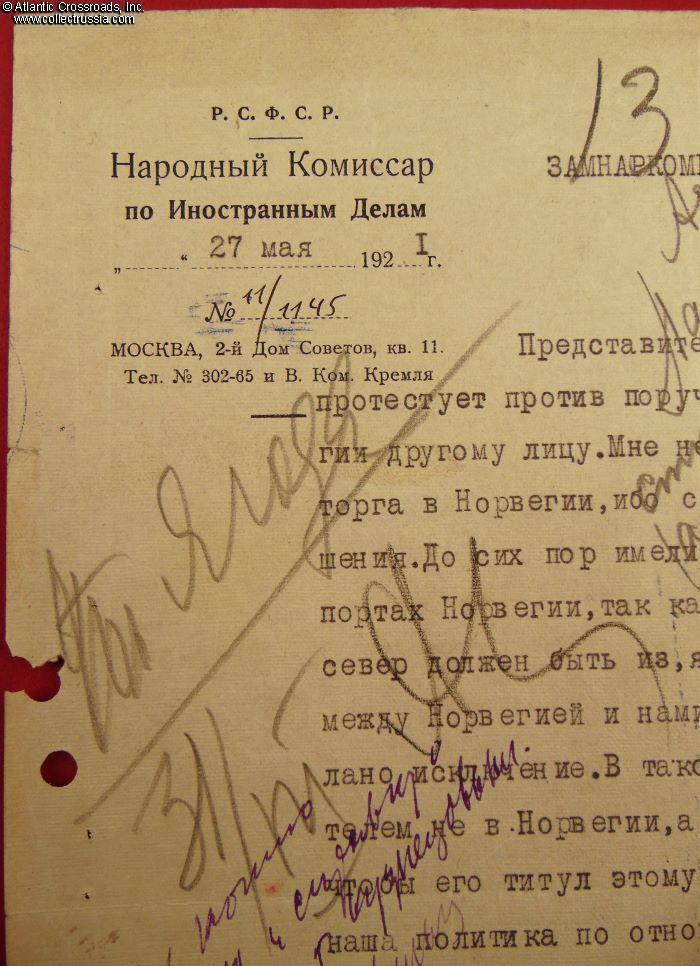 © Atlantic Crossroads, Inc.
www.collectrussia.com
13
Р. С. Ф. С. Р.
Народный Комиссар
по Иностранным Делам
„ “ 27 мая 1921 г.
№ 11/1145
МОСКВА, 2-й Дом Советов, кв. 11.
Тел. № 302-65 и В. Ком. Кремля
ЗАМНАРКОМ
Представите
протестует против поруч
гии другому лицу.Мне не
торга в Норвегии,ибо с
шения.До сих пор имели
портах Норвегии,так ка
север должен быть из,я
между Норвегией и нами
лано исключение.В тако
телем не в Норвегии,а
чтобы его титул этому
наша политика по отно
Ягода
31/VI